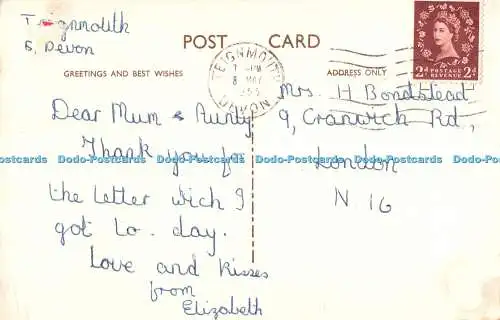 Teignmouth
S. Devon
POST CARD
GREETINGS AND BEST WISHES
ADDRESS ONLY
TEIGNMOUTH
DEVON
POSTAGE
REVENUE
2d 2d
Dear Mum & Aunty
Thank you for
the letter wich I
got to. day.
Love and Kisses
from
Elizabeth
Mrs. H Bondstead
9, Cranwich Rd,
London
N 16
Dodo-Postcards Dodo-Postcards Dodo-Postcards Dodo-Postcards Dodo-Postcards